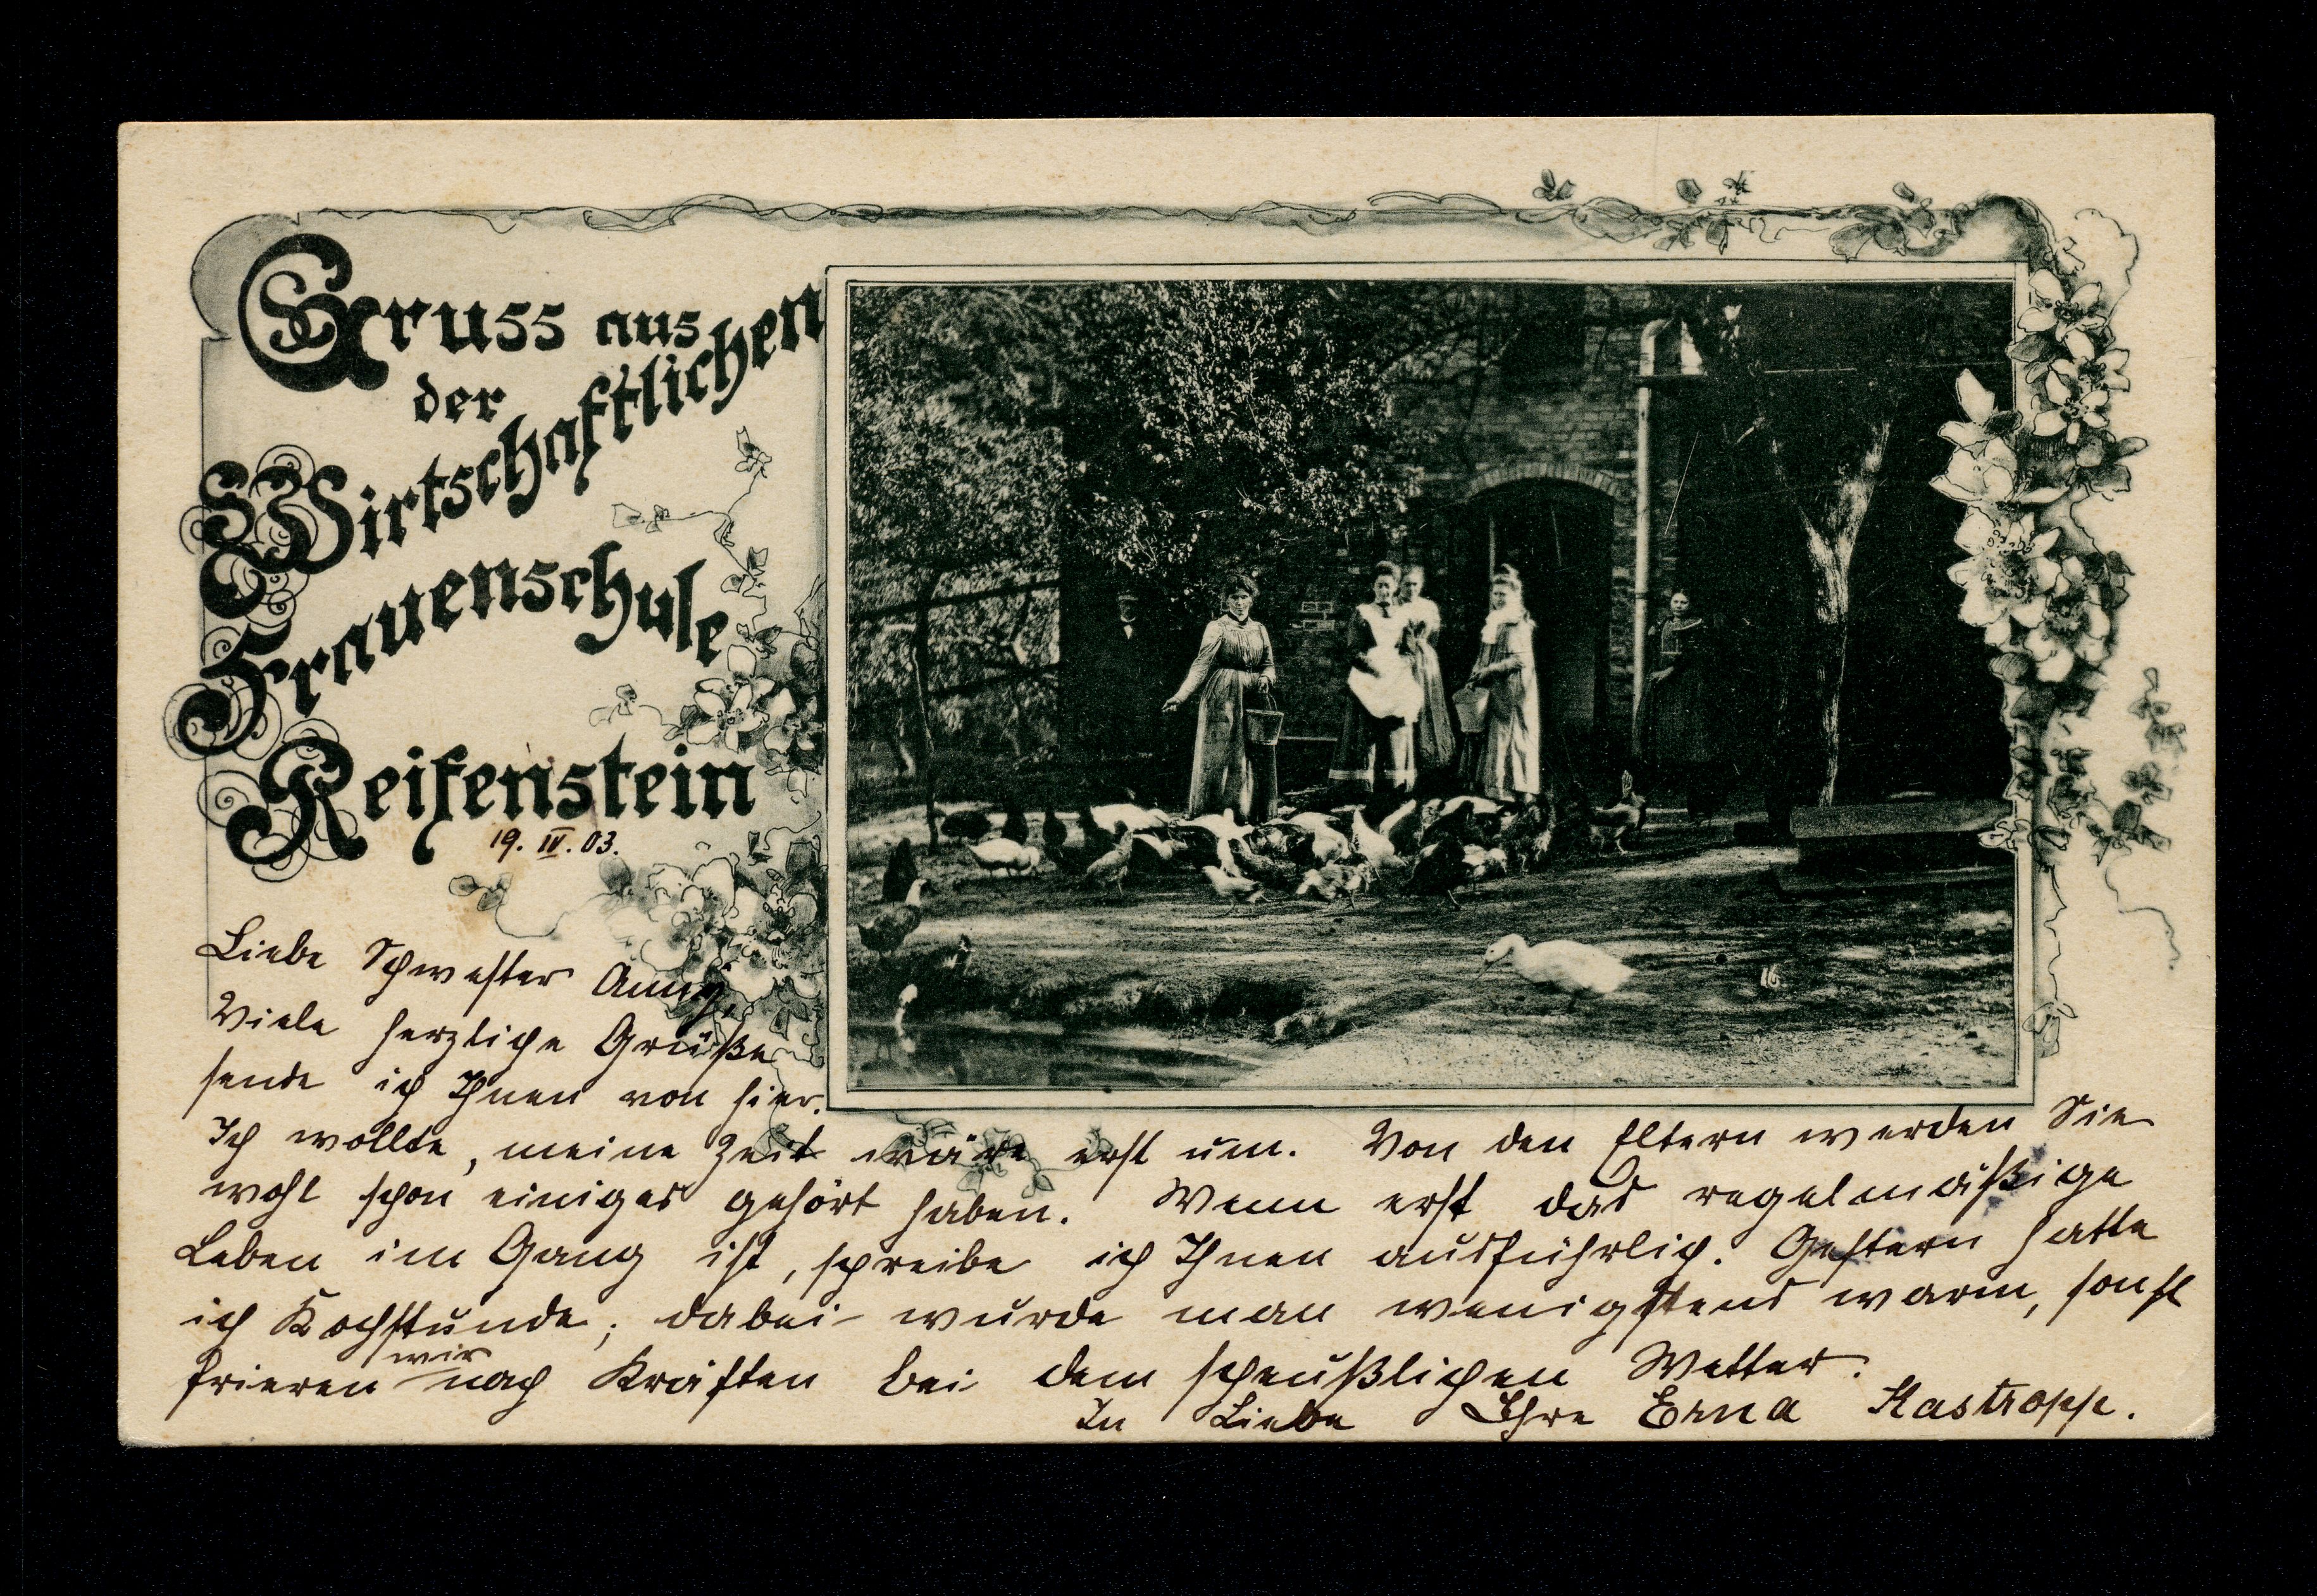 Gruss aus
der
Wirtschaftlichen
Frauenschule
Reifenstein
19. IV. 03.
Liebe Schwester Änny,
Viele herzliche Grüße
sende ich Ihnen von hier.
Ich wollte, meine Zeit wäre erst um. Von den Eltern werden Sie
wohl schon einiges gehört haben. Wenn erst das regelmäßige
Leben im Gang ist, schreibe ich Ihnen ausführlich. Gestern hatte
ich Kochstunde; dabei wurde man wenigstens warm, sonst
frieren wir nach Kräften bei dem scheußlichen Wetter.
In Liebe Ihre Erna Kastropp.
16